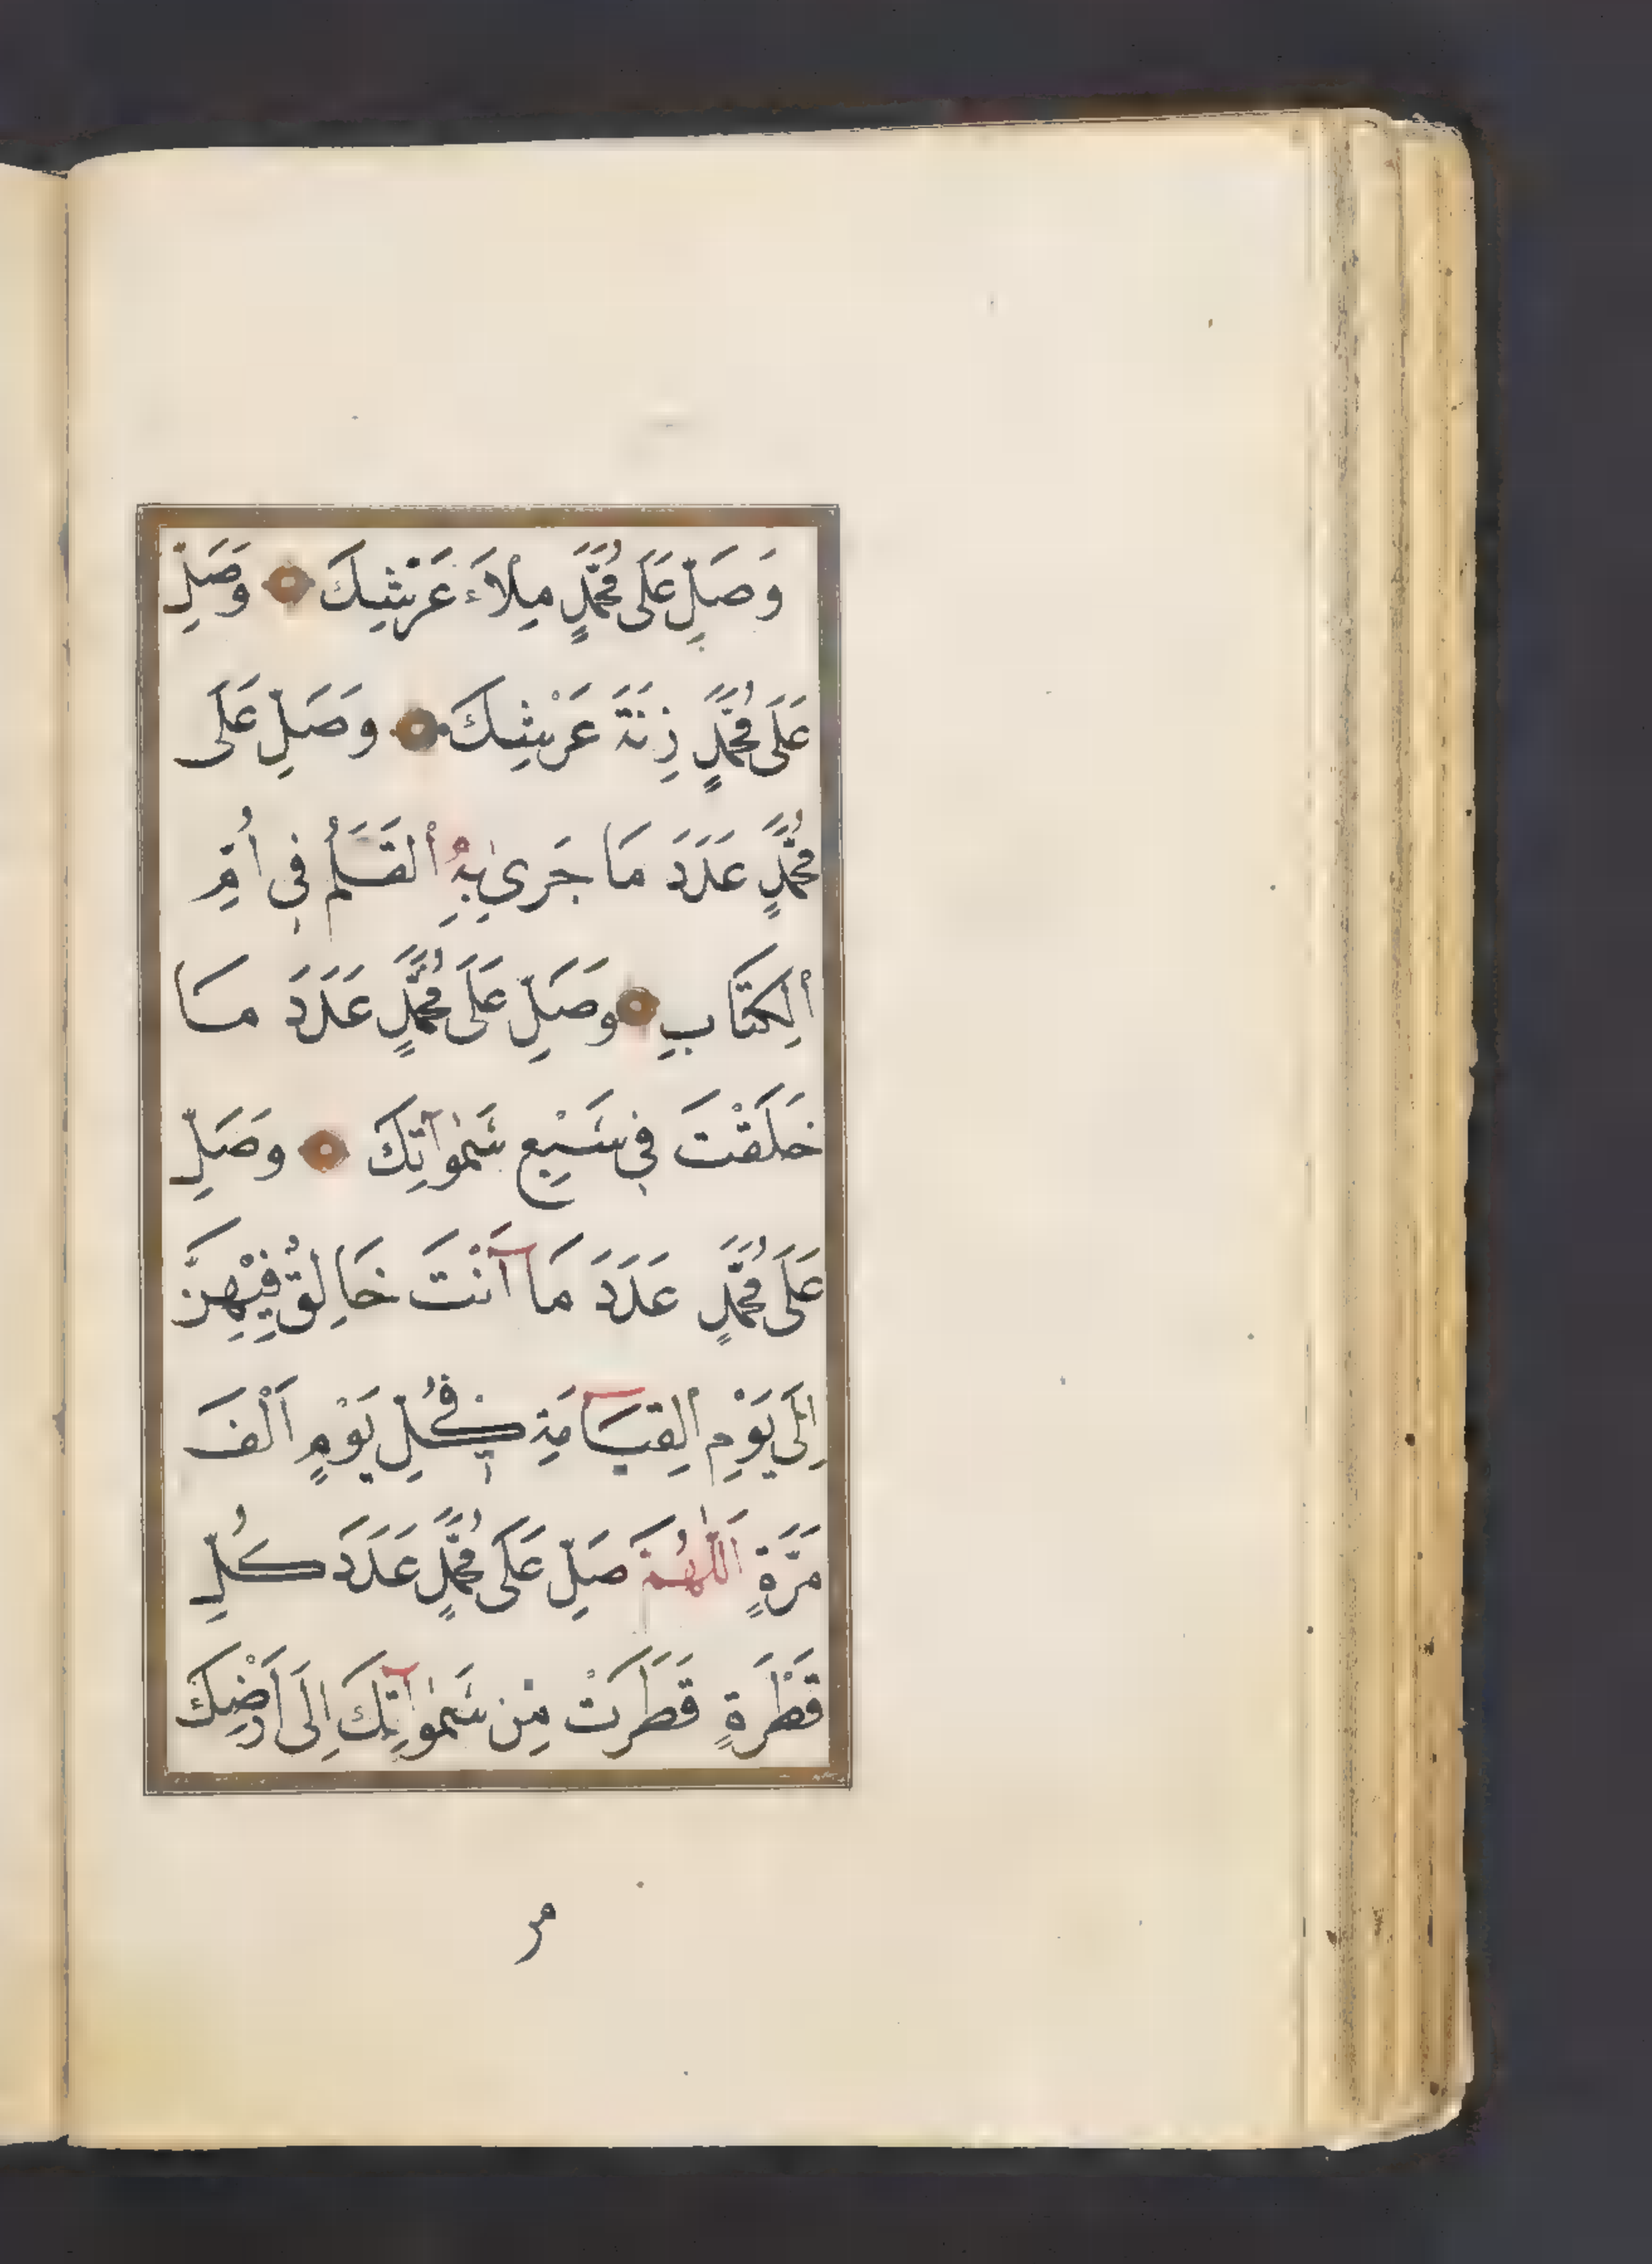 وَصَلِّ عَلَى مُحَمَّدٍ مِلْاَءَ عَرْشِكَ وَصَلِّ
عَلَى مُحَمَّدٍ زِنَةَ عَرْشِكَ وَصَلِّ عَلَى
مُحَمَّدٍ عَدَدَ مَا جَرىٰ بِهِ الْقَلَمُ فِي اُمِّ
الْكِتَابِ وَصَلِّ عَلَى مُحَمَّدٍ عَدَدَ مَا
خَلَقْتَ فِي سَبْعِ سَمٰوَاتِكَ وَصَلِّ
عَلَى مُحَمَّدٍ عَدَدَ مَا اَنْتَ خَالِقٌ فِيْهِنَّ
اِلَى يَوْمِ الْقِيَامَةِ فِي كُلِّ يَوْمٍ اَلْفَ
مَرَّةٍ اَللّٰهُمَّ صَلِّ عَلَى مُحَمَّدٍ عَدَدَ كُلِّ
قَطْرَةٍ قَطَرَتْ مِنْ سَمٰوَاتِكَ اِلَى اَرْضِكَ